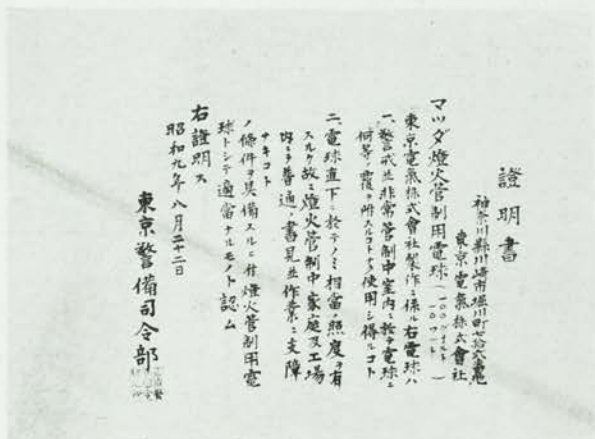 證明書
神奈川縣川崎市堀川町七拾弍番地
東京電氣株式會社
マツダ燈火管制用電球(一〇〇ヴオルト 一〇ワツト)
東京電氣株式會社製作ニ係ル右電球ハ
一、警戒並非常管制中室内ニ於テ電球ニ
何等ノ覆ヲ附スルコトナク使用シ得ルコト
二、電球直下ニ於テノミ相當ノ照度ヲ有
スルヲ故ニ燈火管制中家庭及工場
内ニテ普通ノ書見並作業ニ支障
ナキコト
ノ條件ヲ具備スルニ付燈火管制用電
球トシテ適當ナルモノト認ム
右證明ス
昭和九年八月二十二日
東京警備司令部